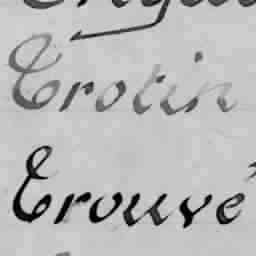 Trotin
Trouvé